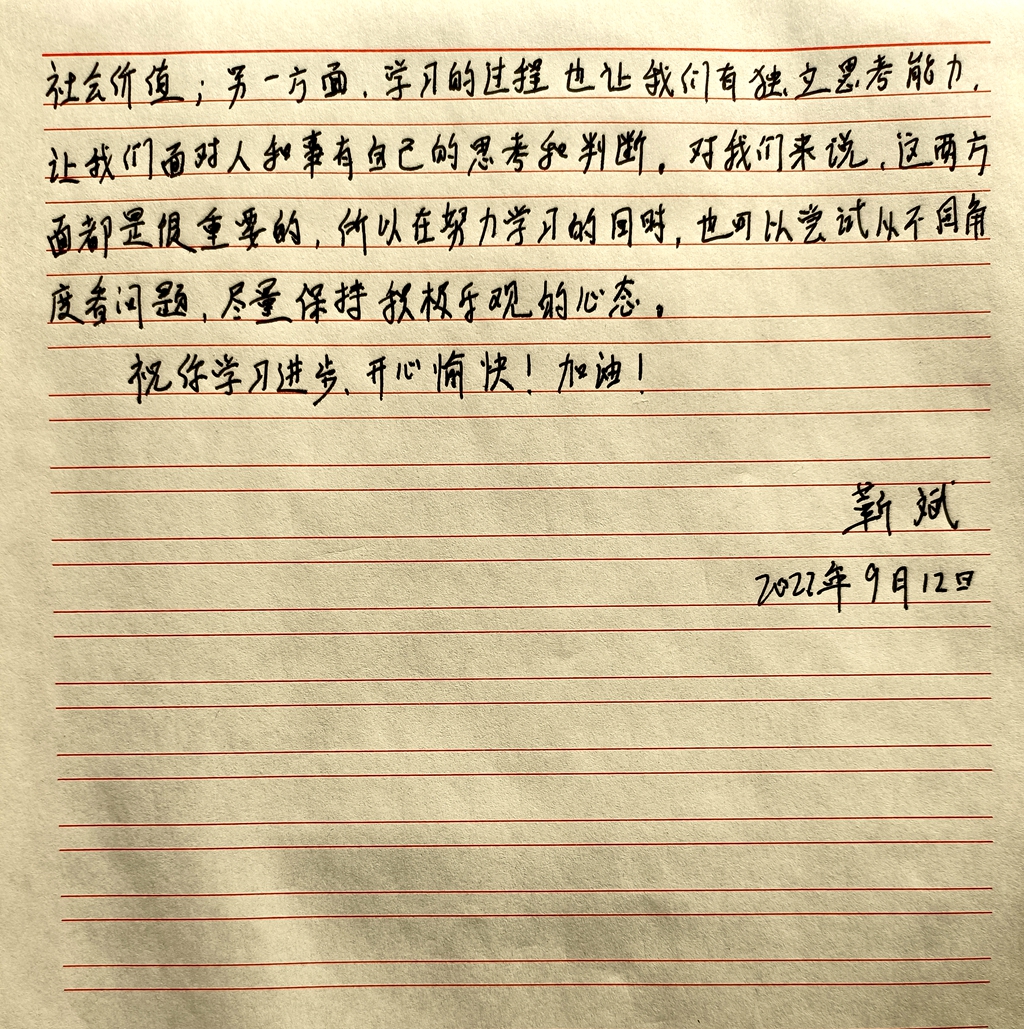 社会价值；另一方面，学习的过程也让我们有独立思考能力，
让我们面对人和事有自己的思考和判断。对我们来说，这两方
面都是很重要的，所以在努力学习的同时，也可以尝试从不同角
度看问题，尽量保持积极乐观的心态。
祝你学习进步、开心愉快！加油！
靳斌
2022年9月12日